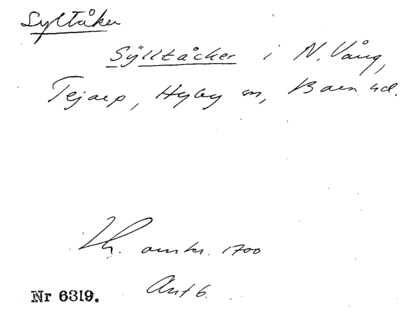 Syltåker
Sÿlltåcker i N. Vång,
Tejarp, Hyby sn, Bara hd.
Lh. omkr. 1700
Ant 6.
Nr 6319.